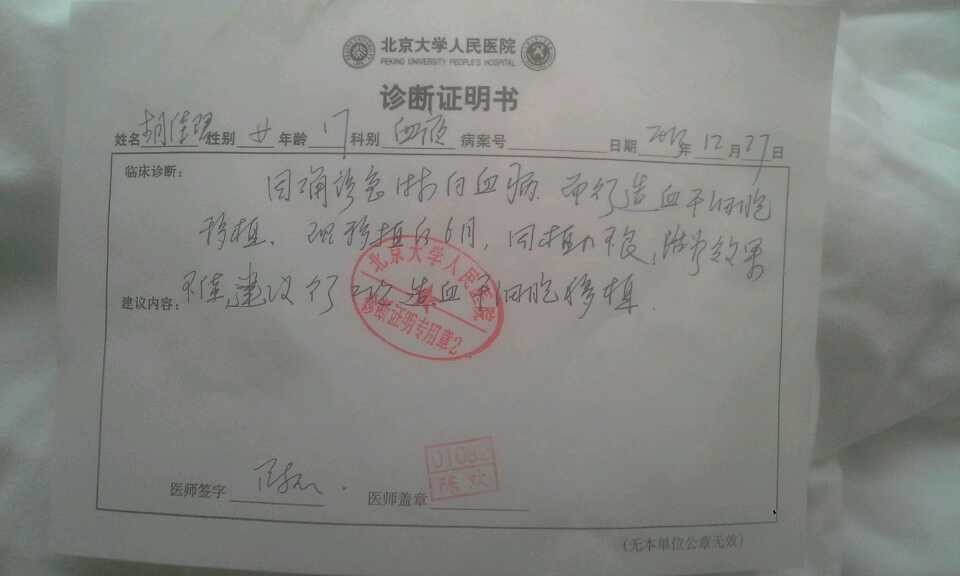 北京大学人民医院
PEKING UNIVERSITY PEOPLE'S HOSPITAL
诊断证明书
姓名 胡佳 性别 女 年龄 17 科别 血液 病案号 日期 年 12 月 27 日
临床诊断：
因确诊急淋白血病 而行造血干细胞
移植。现移植后6月，因植入不良，治疗效果
不佳，建议行二次造血干细胞移植
建议内容：
北京大学人民医院
诊断证明专用章2
医师签字
医师盖章
陈欢
（无本单位公章无效）